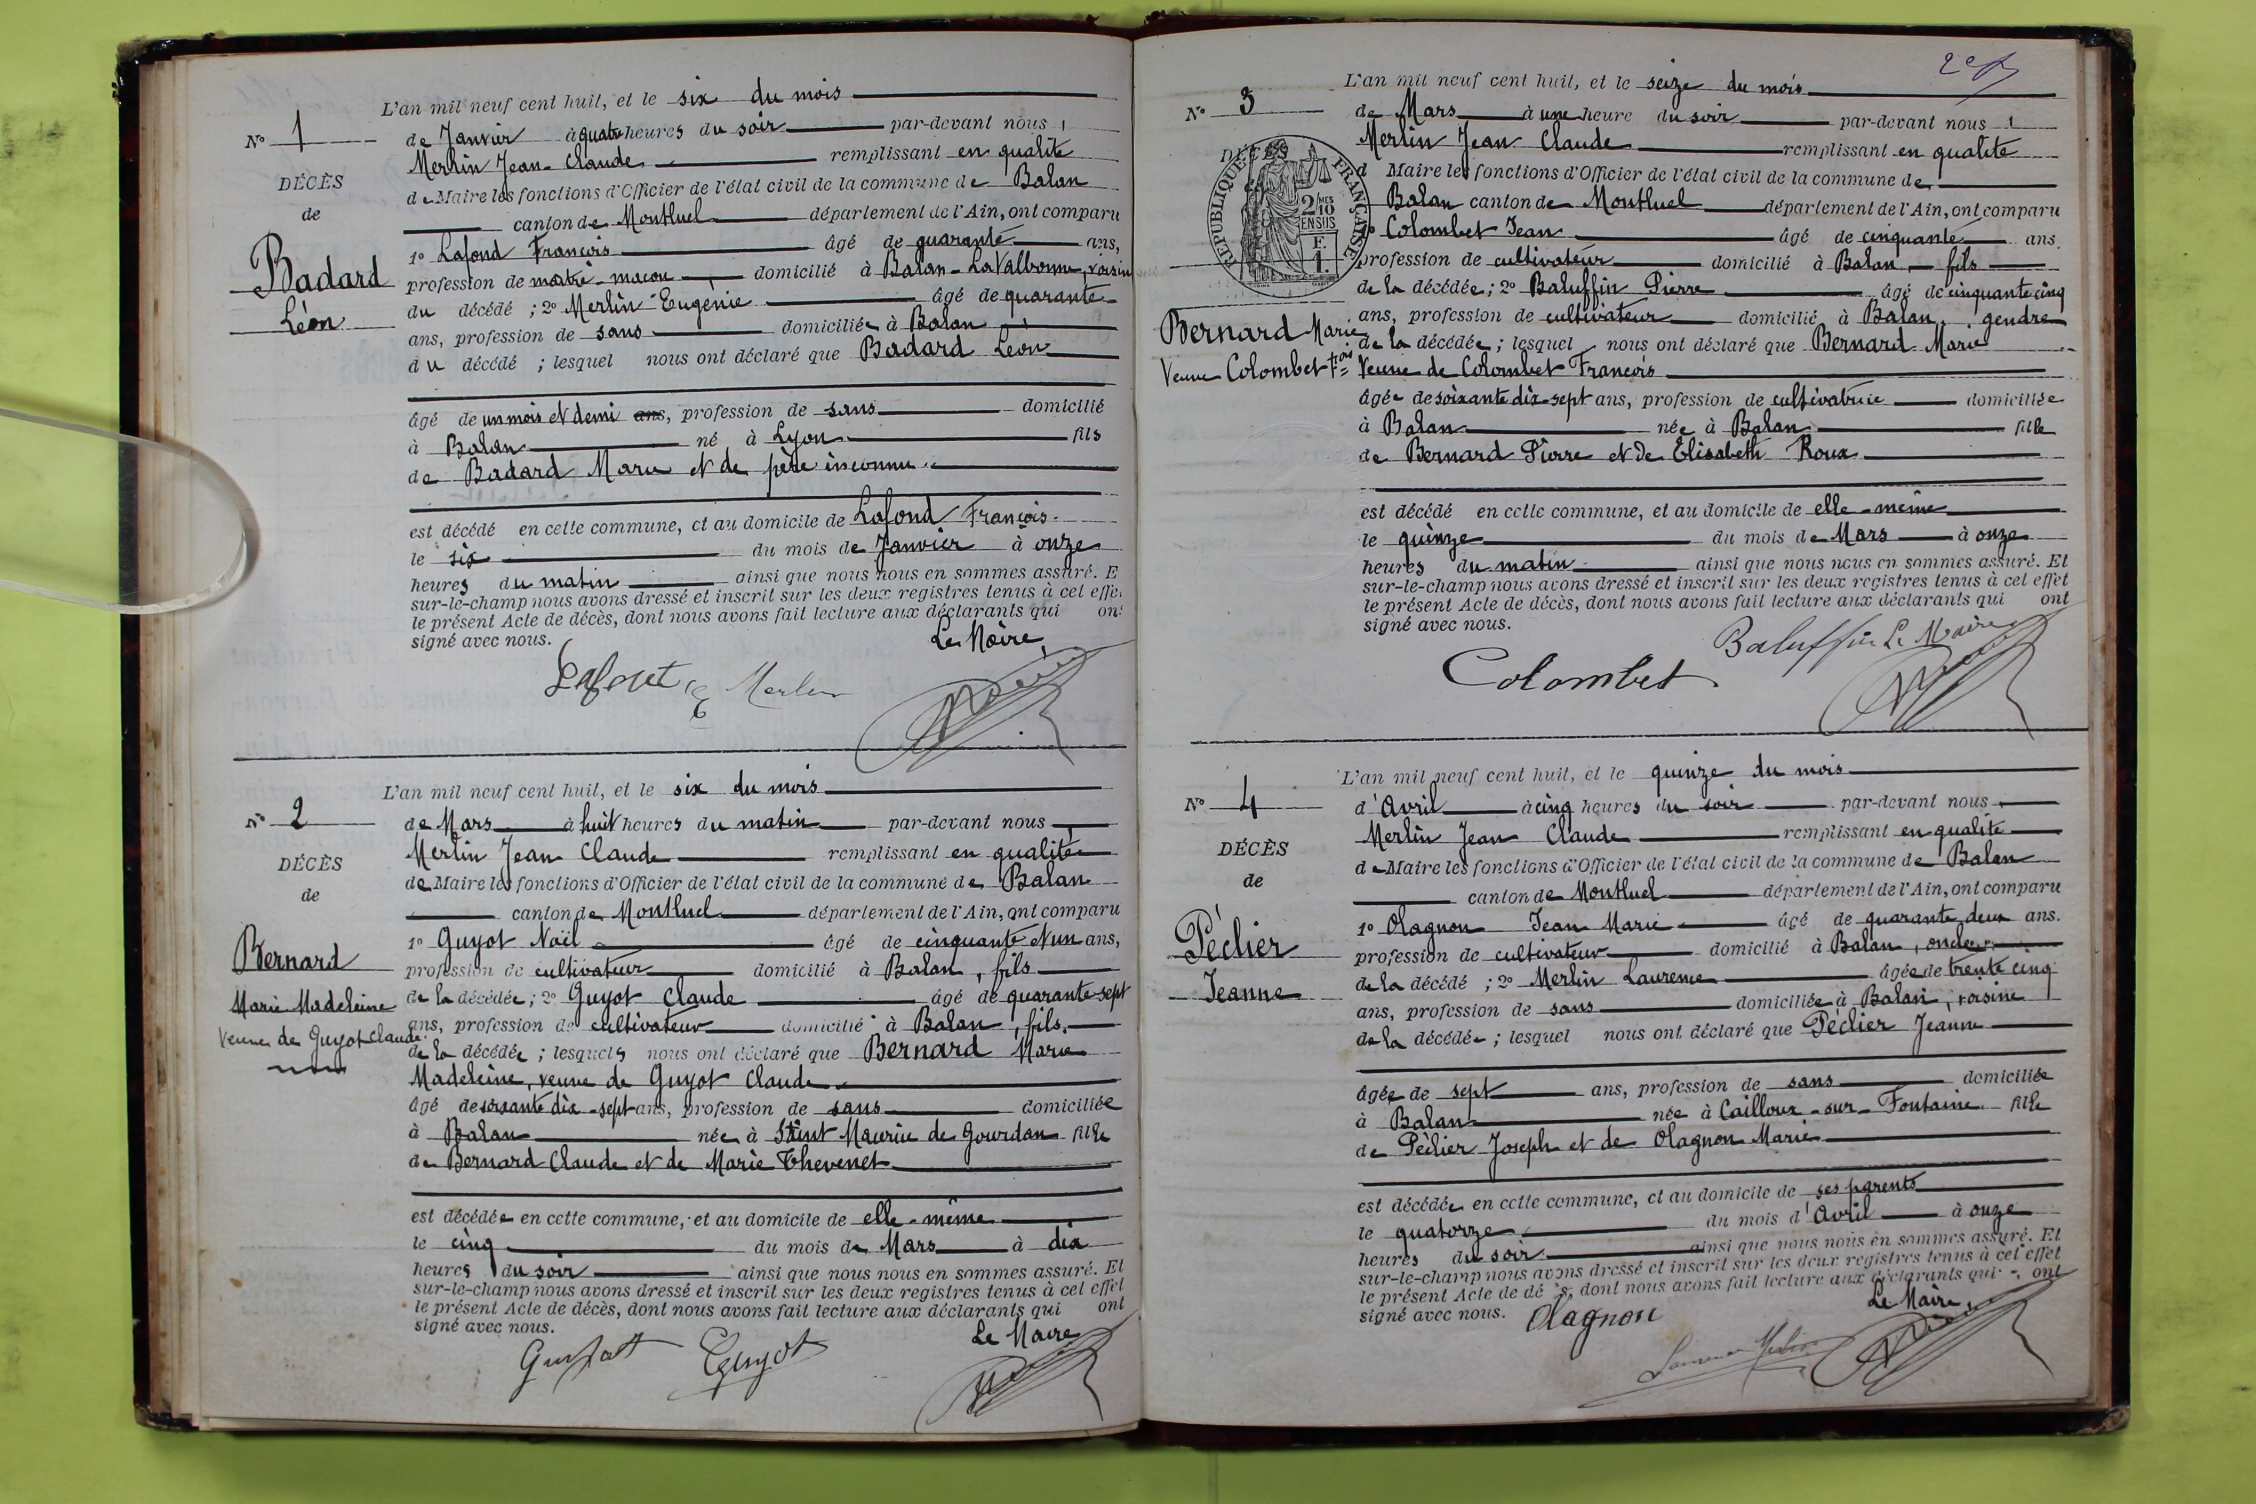 L'an mil neuf cent huit, et le six du mois
No 1
de Janvier à quatre heures du soir par-devant nous
Merlin Jean-Claude remplissant en qualité
DÉCÈS
de Maire les fonctions d'Officier de l'état civil de la commune de Balan
de
canton de Montluel département de l'Ain, ont comparu
Badard
1o Lafond François âgé de quarante ans,
profession de maître-maçon domicilié à Balan-La Valbonne, voisin
Léon
du décédé ; 2o Merlin Eugénie âgé de quarante
ans, profession de sans domiciliée à Balan
du décédé ; lesquel nous ont déclaré que Badard Léon
âgé de un mois et demi ans, profession de sans domicilié
à Balan né à Lyon fils
de Badard Marie et de père inconnu
est décédé en cette commune, et au domicile de Lafond François
le six du mois de Janvier à onze
heures du matin ainsi que nous nous en sommes assuré. E
sur-le-champ nous avons dressé et inscrit sur les deux registres tenus à cet effet
le présent Acte de décès, dont nous avons fait lecture aux déclarants qui ont
signé avec nous.
Le Maire,
E Merlin
L'an mil neuf cent huit, et le six du mois
No 2
de Mars à huit heures du matin par-devant nous
Merlin Jean Claude remplissant en qualité
DÉCÈS
de Maire les fonctions d'Officier de l'état civil de la commune de Balan
de
canton de Montluel département de l'Ain, ont comparu
1o Guyot Noël âgé de cinquante et un ans,
Bernard
profession de cultivateur domicilié à Balan, fils
Marie Madeleine
de la décédée ; 2o Guyot Claude âgé de quarante-sept
ans, profession de cultivateur domicilié à Balan, fils
Veuve de Guyot Claude
de la décédée ; lesquels nous ont déclaré que Bernard Marie
Madeleine, veuve de Guyot Claude
âgé de soixante dix-sept ans, profession de sans domiciliée
à Balan née à Saint Maurice de Gourdan fille
de Bernard Claude et de Marie Thevenet
est décédée en cette commune, et au domicile de elle-même
le cinq du mois de Mars à dix
heures du soir ainsi que nous nous en sommes assuré. Et
sur-le-champ nous avons dressé et inscrit sur les deux registres tenus à cet effet
le présent Acte de décès, dont nous avons fait lecture aux déclarants qui ont
signé avec nous.
Le Maire
Guyot
L'an mil neuf cent huit, et le seize du mois
No 3
de Mars à une heure du soir par-devant nous
Merlin Jean Claude remplissant en qualité
DÉCÈS
RÉPUBLIQUE FRANÇAISE
2/10MES EN SUS
F. 1.
d Maire les fonctions d'Officier de l'état civil de la commune de
Balan canton de Montluel département de l'Ain, ont comparu
Colombet Jean âgé de cinquante ans,
profession de cultivateur domicilié à Balan, fils
de la décédée ; 2o Baluffin Pierre âgé de cinquante cinq
ans, profession de cultivateur domicilié à Balan, gendre
Bernard Marie
de la décédée ; lesquel nous ont déclaré que Bernard Marie
Veuve Colombet Fçois
Veuve de Colombet François
âgée de soixante dix-sept ans, profession de cultivatrice domiciliée
à Balan née à Balan fille
de Bernard Pierre et de Elisabeth Roux
est décédé en cette commune, et au domicile de elle-même
le quinze du mois de Mars à onze
heures du matin ainsi que nous nous en sommes assuré. Et
sur-le-champ nous avons dressé et inscrit sur les deux registres tenus à cet effet
le présent Acte de décès, dont nous avons fait lecture aux déclarants qui ont
signé avec nous.
Baluffin Le Maire
Colombet
L'an mil neuf cent huit, et le quinze du mois
No 4
d'Avril à cinq heures du soir par-devant nous
Merlin Jean Claude remplissant en qualité
DÉCÈS
de Maire les fonctions d'Officier de l'état civil de la commune de Balan
de
canton de Montluel département de l'Ain, ont comparu
1o Olagnon Jean Marie âgé de quarante deux ans.
Péclier
profession de cultivateur domicilié à Balan, oncle
Jeanne
de la décédé ; 2o Merlin Laurence âgée de trente cinq
ans, profession de sans domiciliée à Balan, voisine
de la décédée ; lesquel nous ont déclaré que Péclier Jeanne
âgée de sept ans, profession de sans domiciliée
à Balan née à Cailloux-sur-Fontaine fille
de Péclier Joseph et de Olagnon Marie
est décédée en cette commune, et au domicile de ses parents
le quatorze du mois d'Avril à onze
heures du soir ainsi que nous nous en sommes assuré. Et
sur-le-champ nous avons dressé et inscrit sur les deux registres tenus à cet effet
le présent Acte de décès, dont nous avons fait lecture aux déclarants qui ont
signé avec nous. Olagnon Le Maire,